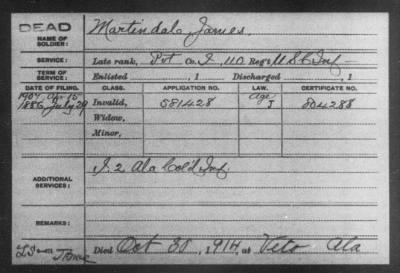 DEAD
NAME OF SOLDIER: Martindale James.
SERVICE: Late rank, Pvt Co. I, 110 Reg't U.S.C. Inf
TERM OF SERVICE: Enlisted , 1 Discharged , 1
DATE OF FILING. CLASS. APPLICATION NO. LAW. CERTIFICATE NO.
1907 Apr 15 Age
1886, July 29 Invalid, 581428 J 804288
Widow,
Minor,
ADDITIONAL SERVICES: I. 2 Ala Col'd Inf.
REMARKS:
Died Oct 30, 1914, at Veto Ala